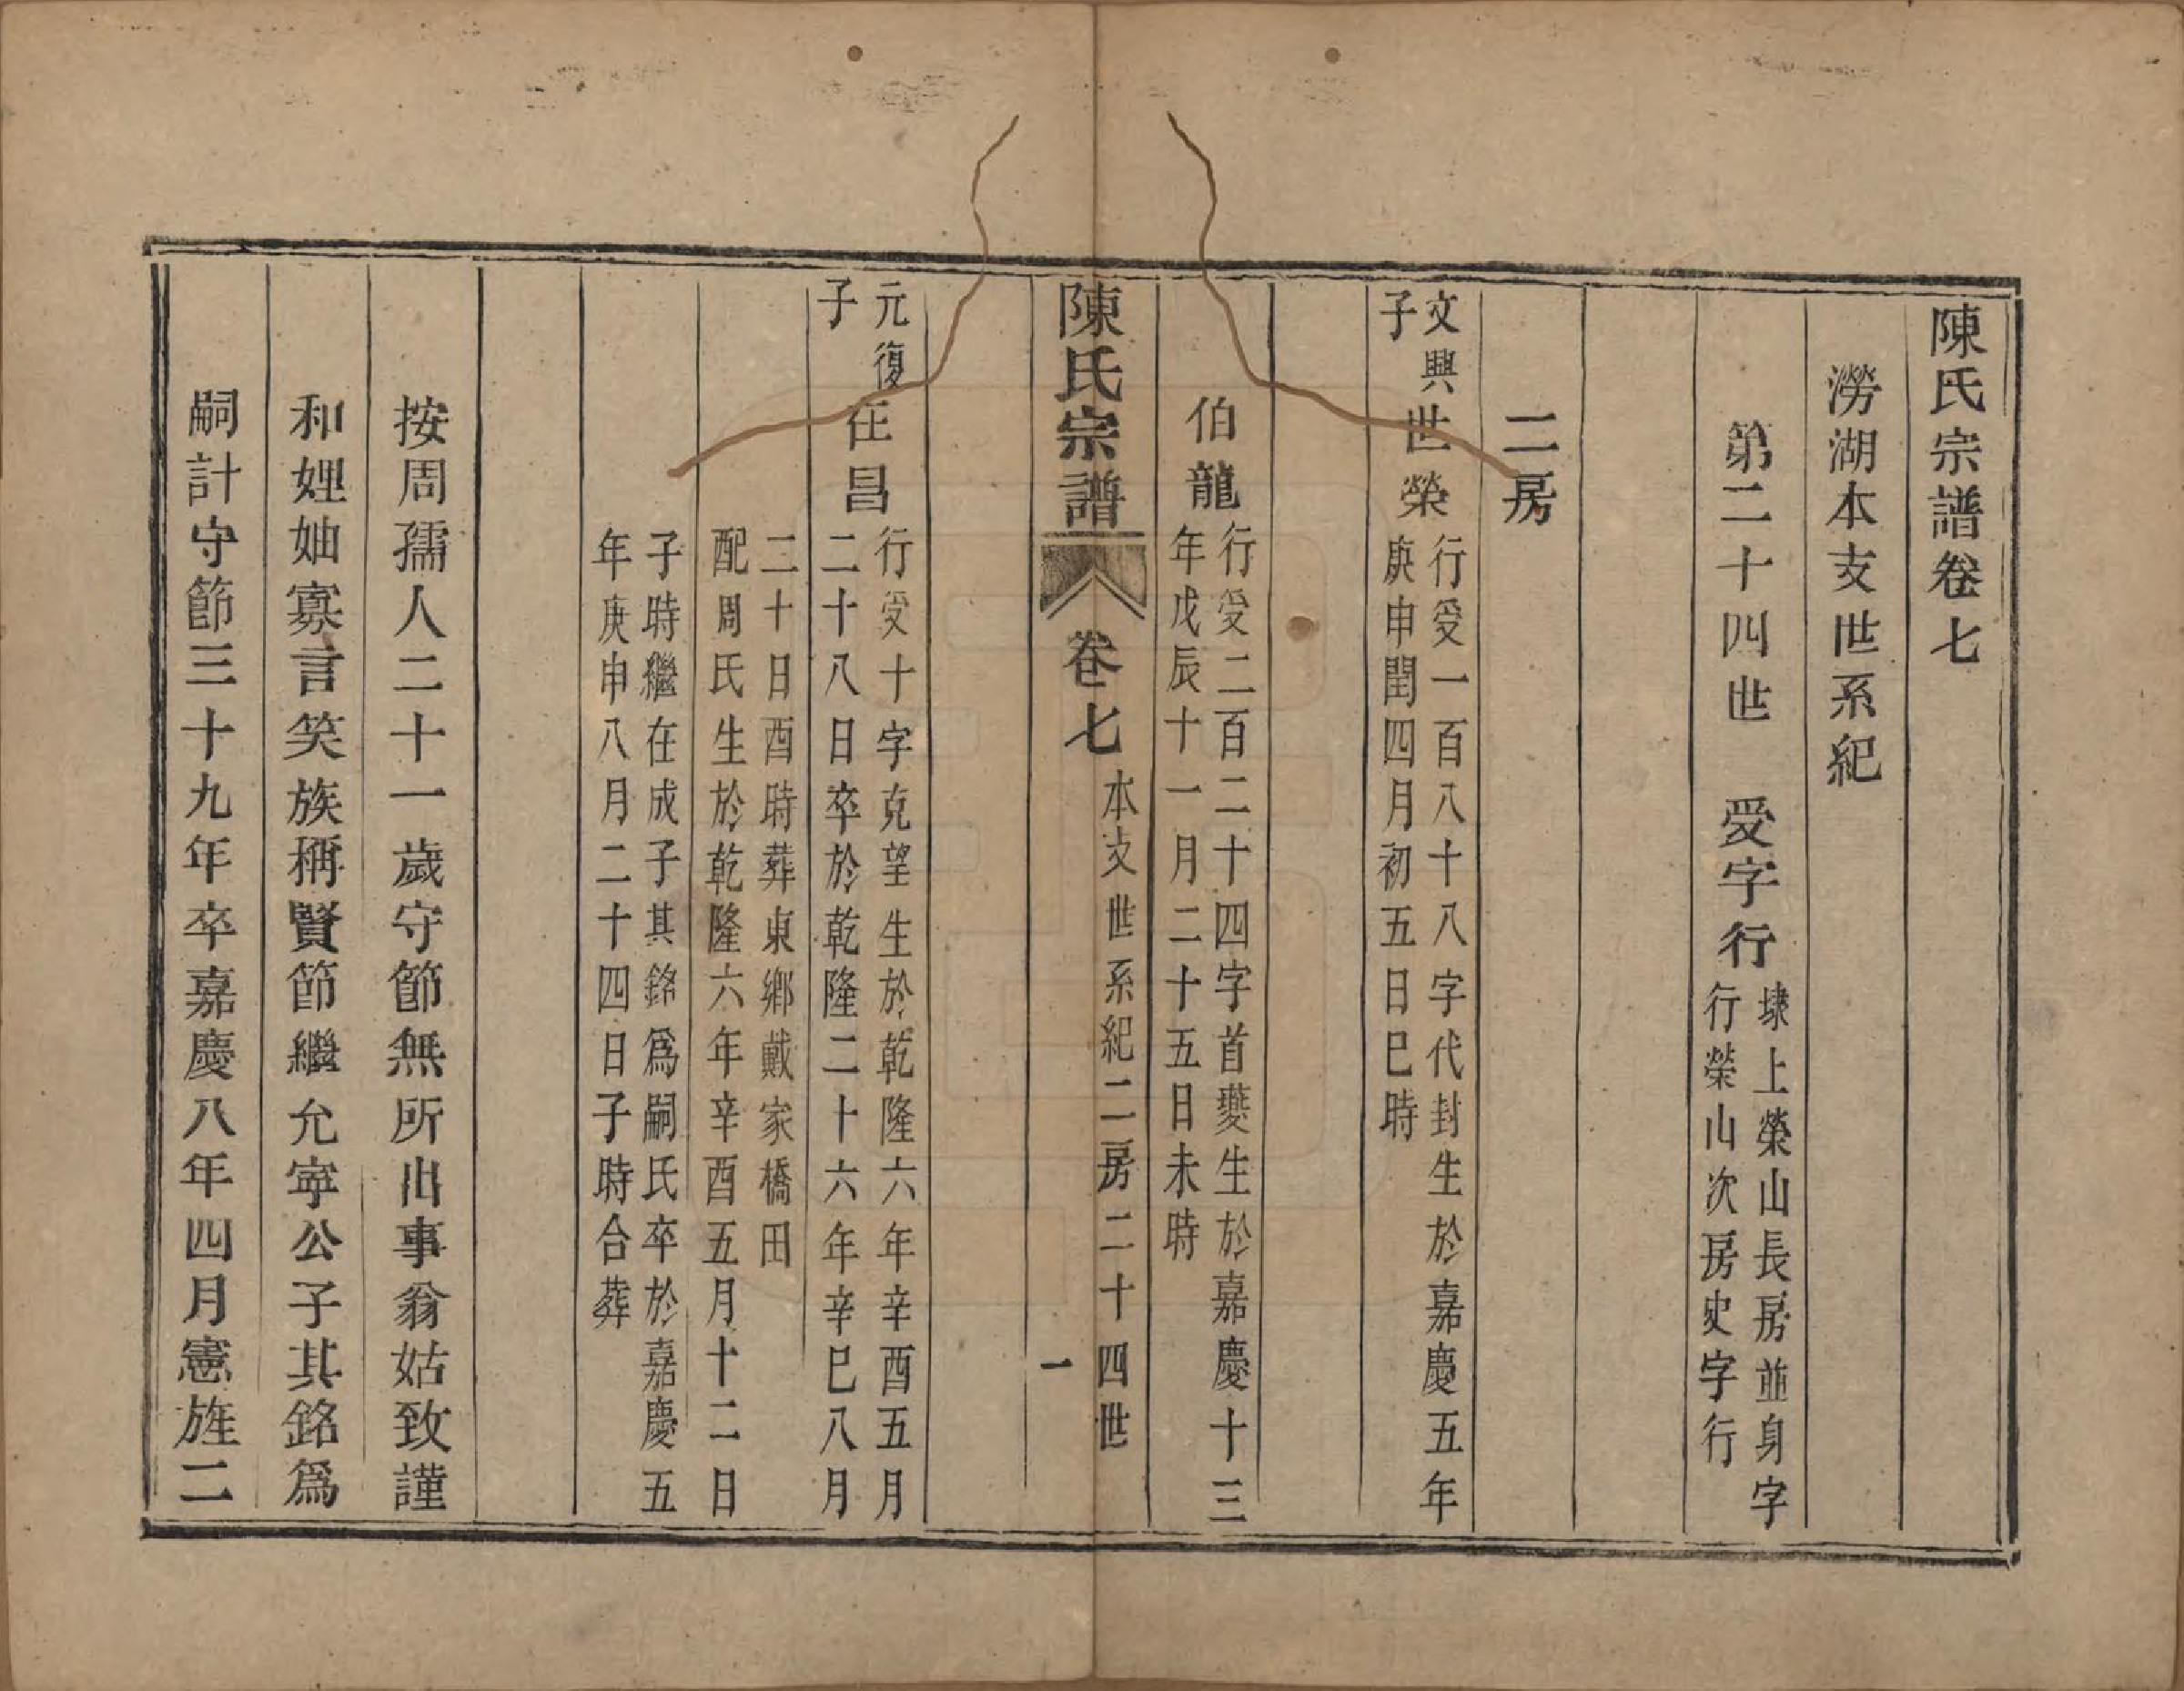 陳氏宗譜卷七
澇湖本支世系紀
第二十四世　受字行
埭上榮山長房並身字
行榮山次房史字行
二房
文興
子
世榮
行受一百八十八字代封生於嘉慶五年
庚申閏四月初五日巳時
伯龍
行受二百二十四字首夔生於嘉慶十三
年戊辰十一月二十五日未時
陳氏宗譜
卷七
本支世系紀二房二十四世
一
元復
子
在昌
行受十字克望生於乾隆六年辛酉五月
二十八日卒於乾隆二十六年辛巳八月
二十日酉時葬東鄉戴家橋田
配周氏生於乾隆六年辛酉五月十二日
子時繼在成子其銘爲嗣氏卒於嘉慶五
年庚申八月二十四日子時合葬
按周孺人二十一歲守節無所出事翁姑致謹
和娌妯寡言笑族稱賢節繼允寧公子其銘爲
嗣計守節三十九年卒嘉慶八年四月憲旌二